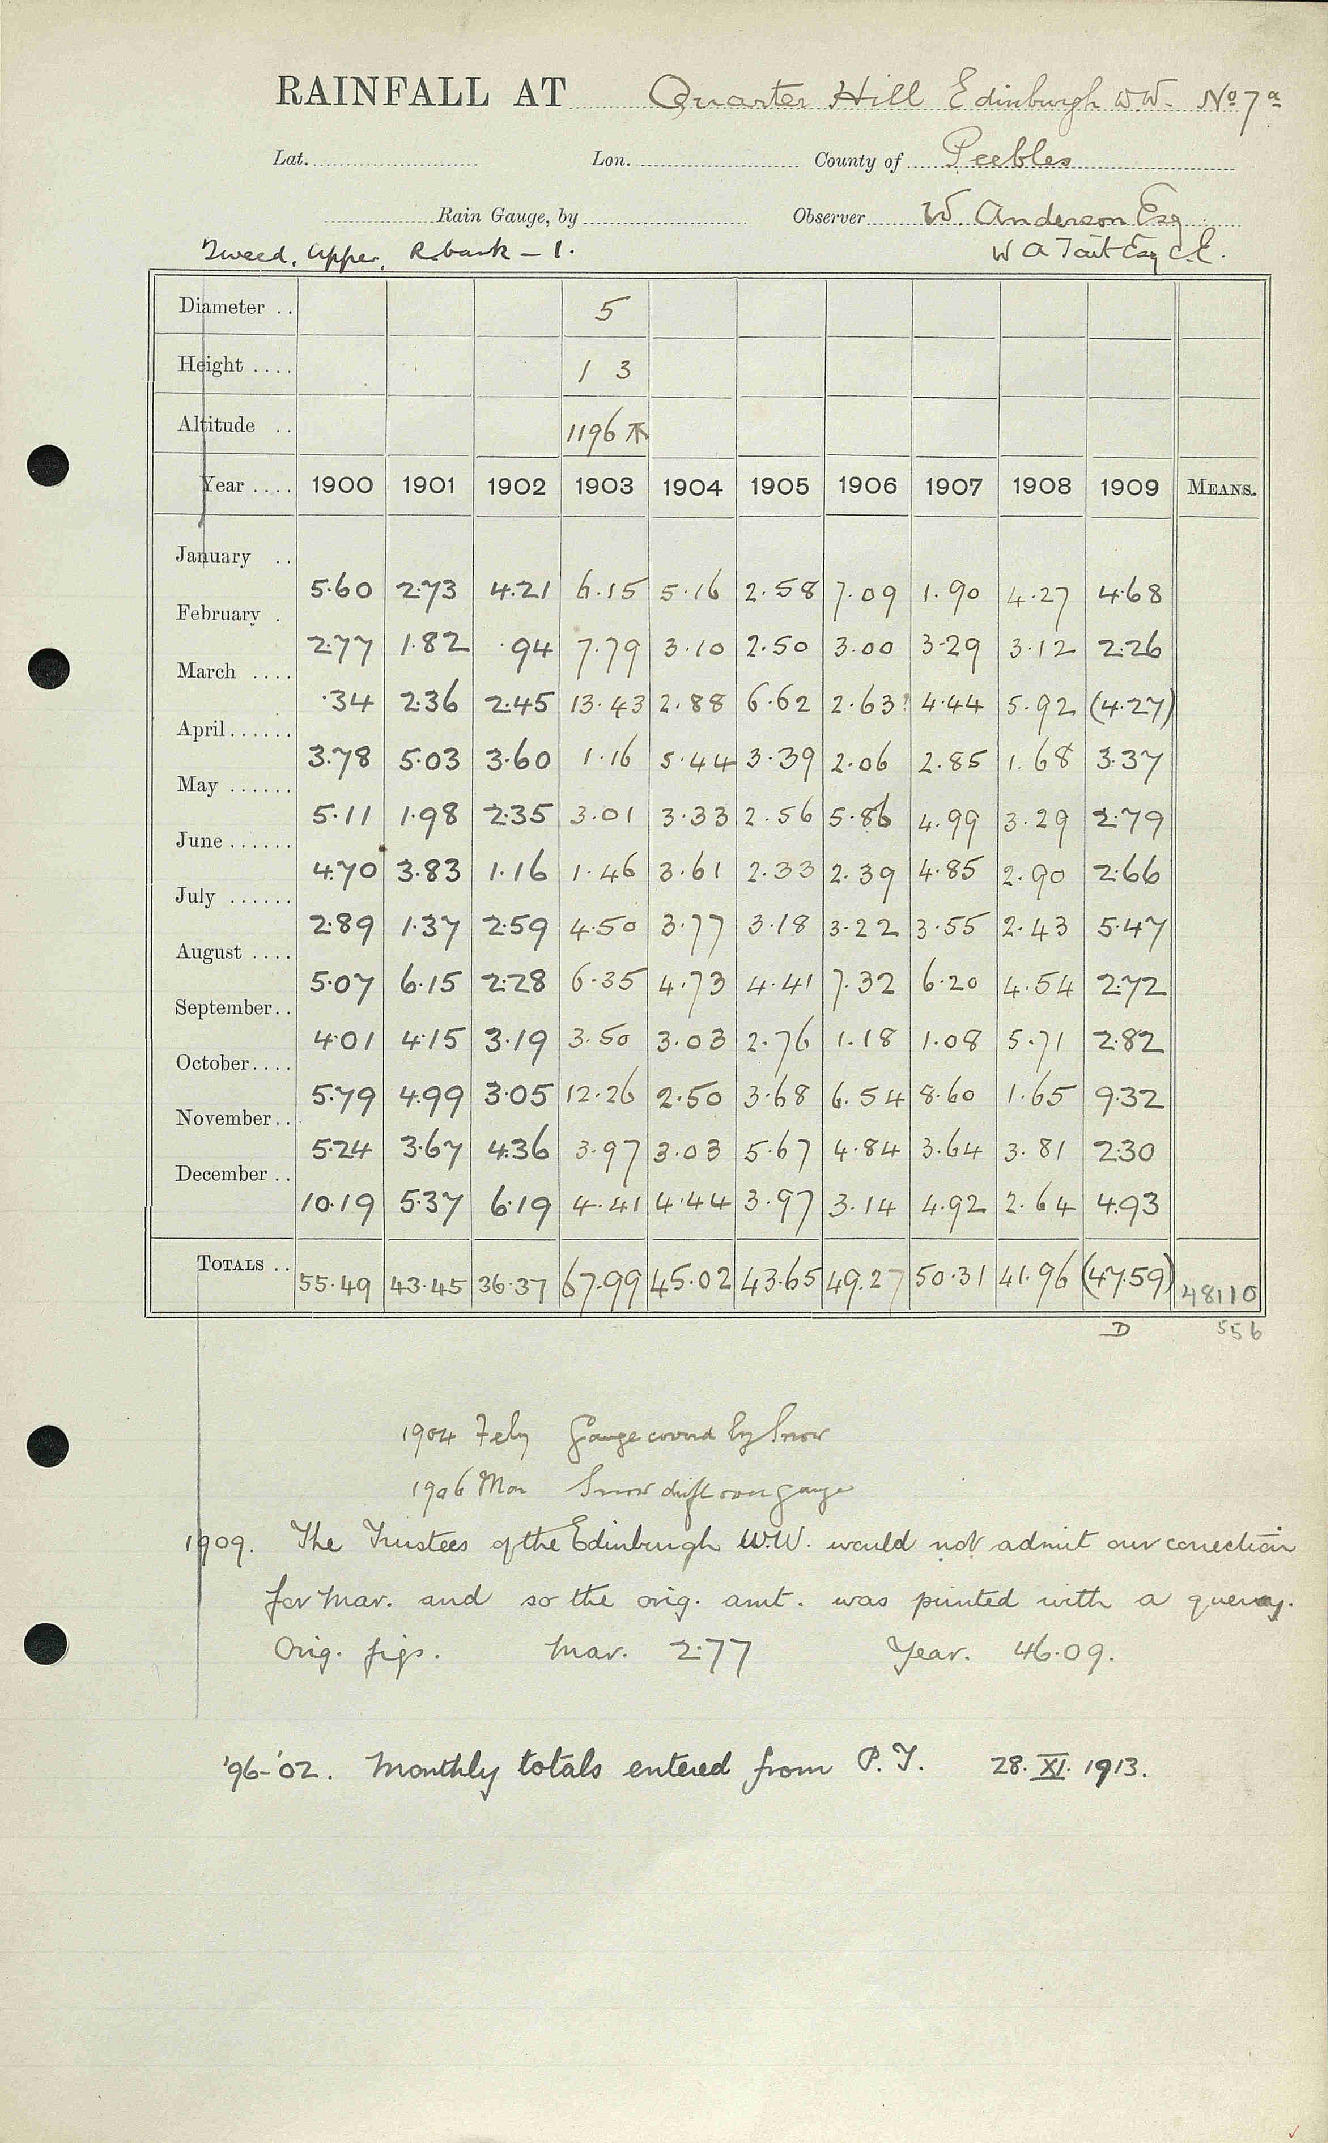 RAINFALL AT Quarter Hill Edinburgh W.W. No 7a
Lat. Lon. County of Peebles
Rain Gauge, by Observer W. Anderson Esq
Tweed, Upper, R. bank – 1. W A Tait Esq C.E.
Diameter .. 5
Height .... 1 3
Altitude .. 1196
Year .... 1900 1901 1902 1903 1904 1905 1906 1907 1908 1909 MEANS.
January .. 5.60 2.73 4.21 6.15 5.16 2.58 7.09 1.90 4.27 4.68
February . 2.77 1.82 .94 7.79 3.10 2.50 3.00 3.29 3.12 2.26
March .... .34 2.36 2.45 13.43 2.88 6.62 2.63? 4.44 5.92 (4.27)
April...... 3.78 5.03 3.60 1.16 5.44 3.39 2.06 2.85 1.68 3.37
May ...... 5.11 1.98 2.35 3.01 3.33 2.56 5.86 4.99 3.29 2.79
June...... 4.70 3.83 1.16 1.46 3.61 2.33 2.39 4.85 2.90 2.66
July ...... 2.89 1.37 2.59 4.50 3.77 3.18 3.22 3.55 2.43 5.47
August .... 5.07 6.15 2.28 6.35 4.73 4.41 7.32 6.20 4.54 2.72
September.. 4.01 4.15 3.19 3.50 3.03 2.76 1.18 1.08 5.71 2.82
October.... 5.79 4.99 3.05 12.26 2.50 3.68 6.54 8.60 1.65 9.32
November.. 5.24 3.67 4.36 3.97 3.03 5.67 4.84 3.64 3.81 2.30
December .. 10.19 5.37 6.19 4.41 4.44 3.97 3.14 4.92 2.64 4.93
TOTALS .. 55.49 43.45 36.37 67.99 45.02 43.65 49.27 50.31 41.96 (47.59) 48110
D 556
1904 Feby Gauge covered by Snow
1906 Mar Snow drift over gauge
1909. The Trustees of the Edinburgh W.W. would not admit our correction
for Mar. and so the orig. amt. was printed with a query.
Orig. figs. Mar. 2.77 Year. 46.09.
'96-'02. Monthly totals entered from P.T. 28.XI.1913.